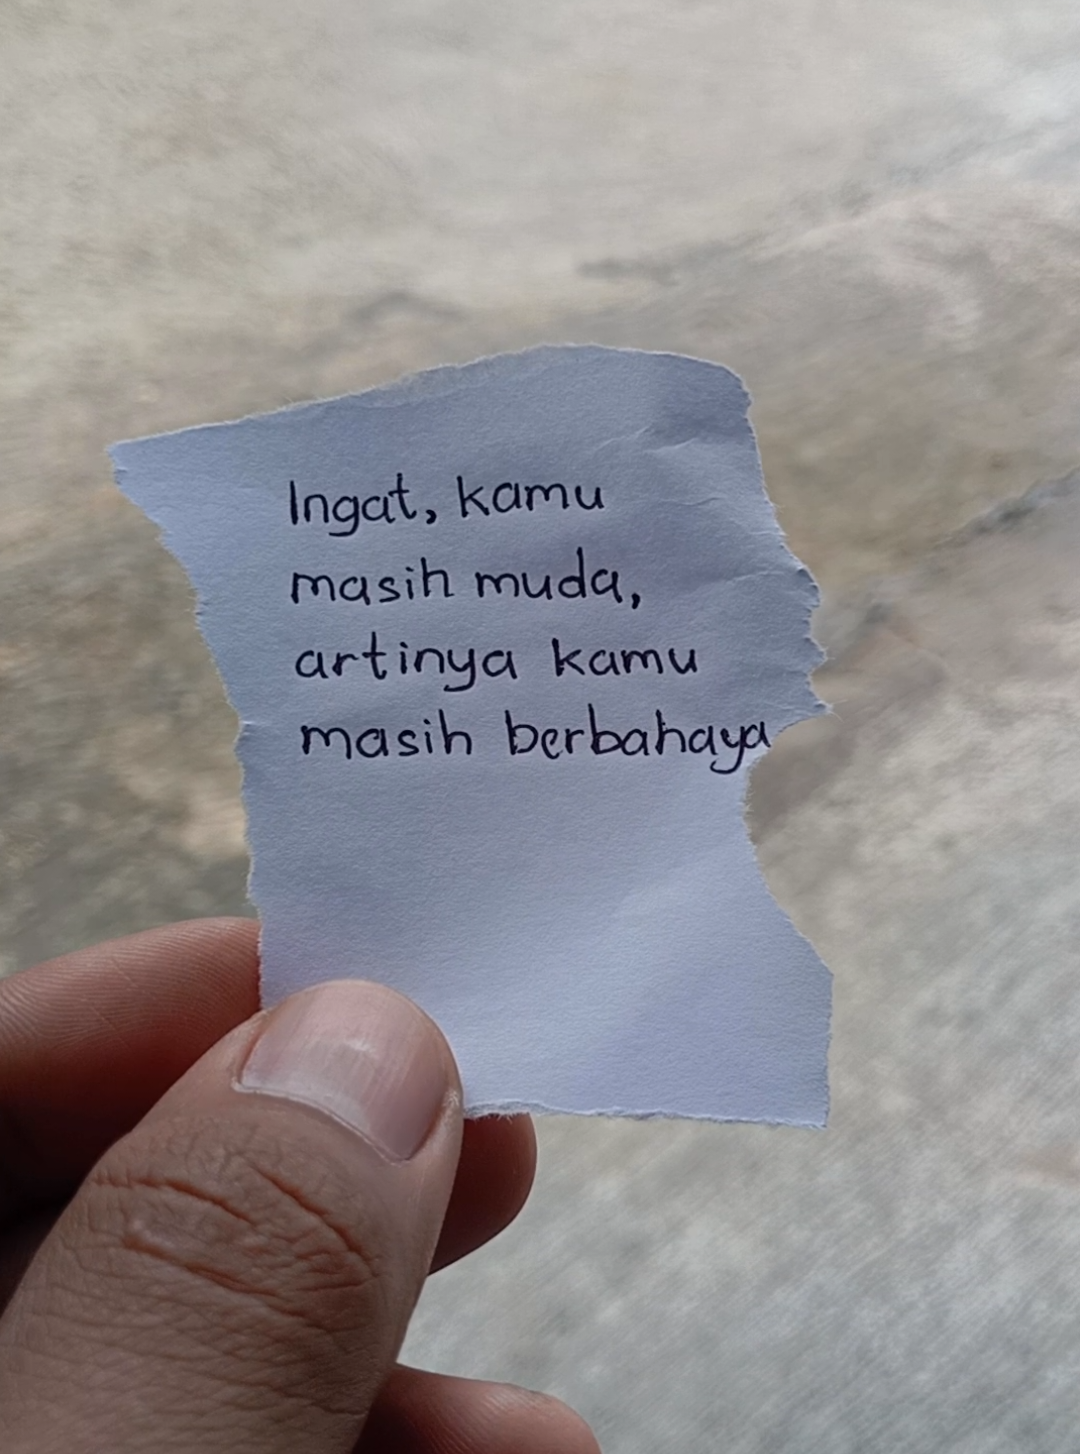 Ingat, kamu
masih muda,
artinya kamu
masih berbahaya